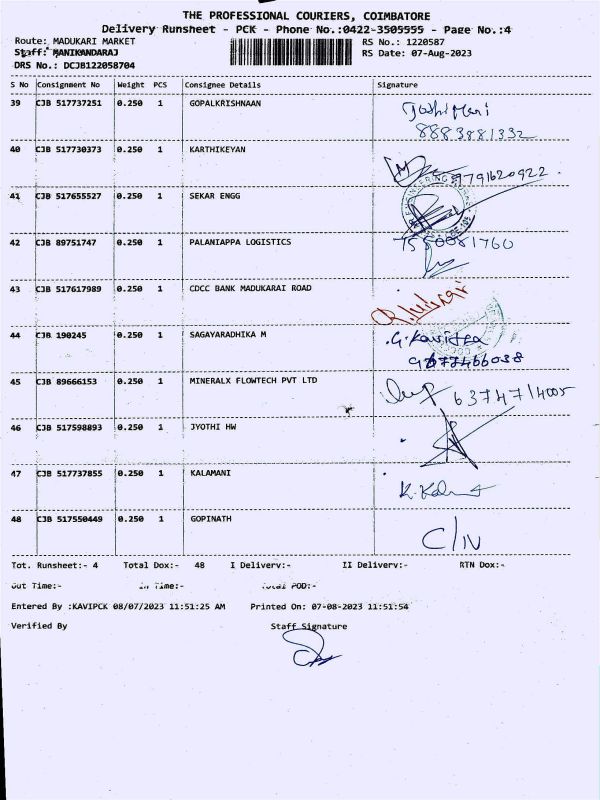 THE PROFESSIONAL COURIERS, COIMBATORE
Delivery Runsheet - PCK - Phone No.:0422-3505555 - Page No.:4
Route: MADUKARI MARKET RS No.: 1220587
Staff: MANIKANDARAJ RS Date: 07-Aug-2023
DRS No.: DCJB122058704
S No Consignment No Weight PCS Consignee Details Signature
39 CJB 517737251 0.250 1 GOPALKRISHNAAN
8883881332
40 CJB 517730373 0.250 1 KARTHIKEYAN
9791620922
41 CJB 517655527 0.250 1 SEKAR ENGG
42 CJB 89751747 0.250 1 PALANIAPPA LOGISTICS 7550081760
43 CJB 517617989 0.250 1 CDCC BANK MADUKARAI ROAD
44 CJB 190245 0.250 1 SAGAYARADHIKA M G. Kavitha
45 CJB 89666153 0.250 1 MINERALX FLOWTECH PVT LTD
46 CJB 517598893 0.250 1 JYOTHI HW
47 CJB 517737855 0.250 1 KALAMANI
48 CJB 517550449 0.250 1 GOPINATH
Tot. Runsheet:- 4 Total Dox:- 48 I Delivery:- II Delivery:- RTN Dox:-
Out Time:- In Time:- Total POD:-
Entered By :KAVIPCK 08/07/2023 11:51:25 AM Printed On: 07-08-2023 11:51:54
Verified By Staff Signature